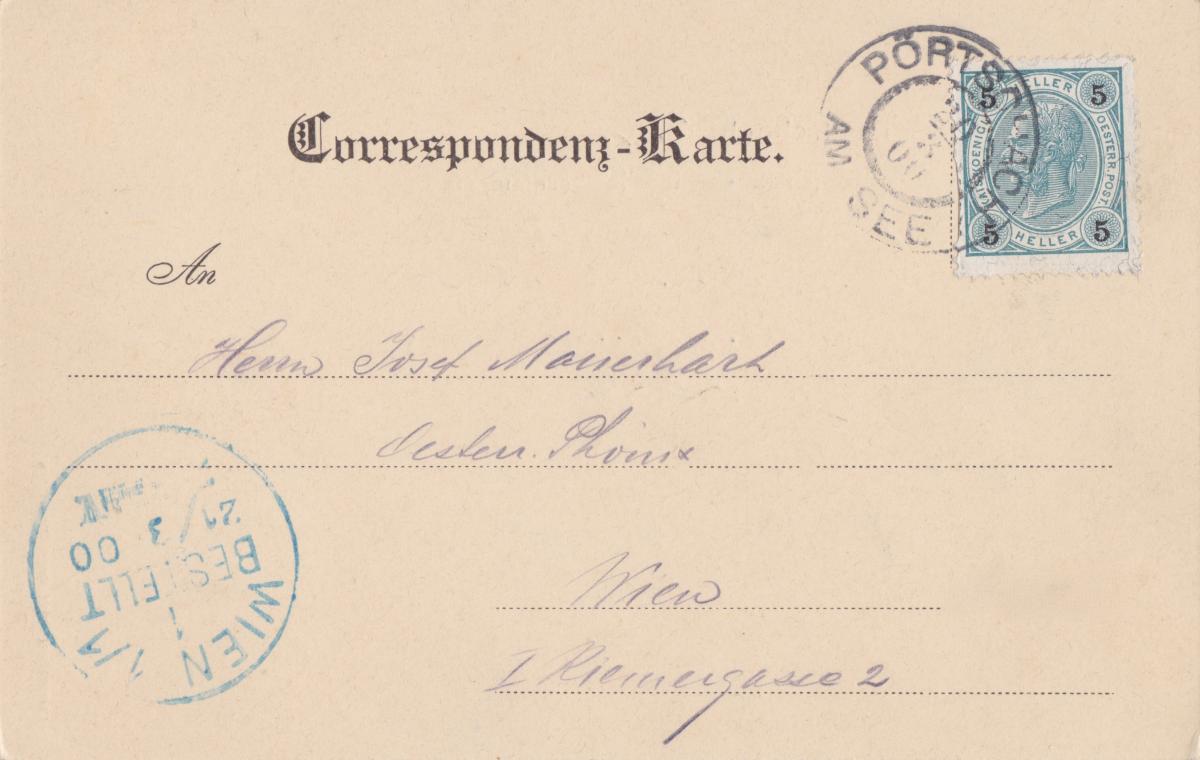 Correspondenz-Karte.
PÖRTSCHACH
AM SEE
5 HELLER 5
OESTERR. POST.
5 HELLER 5
An
Herrn Josef Mauerhart
Oesterr. Phönix
Wien
I Riemergasse 2
WIEN 1/1
BESTELLT
21/3 00